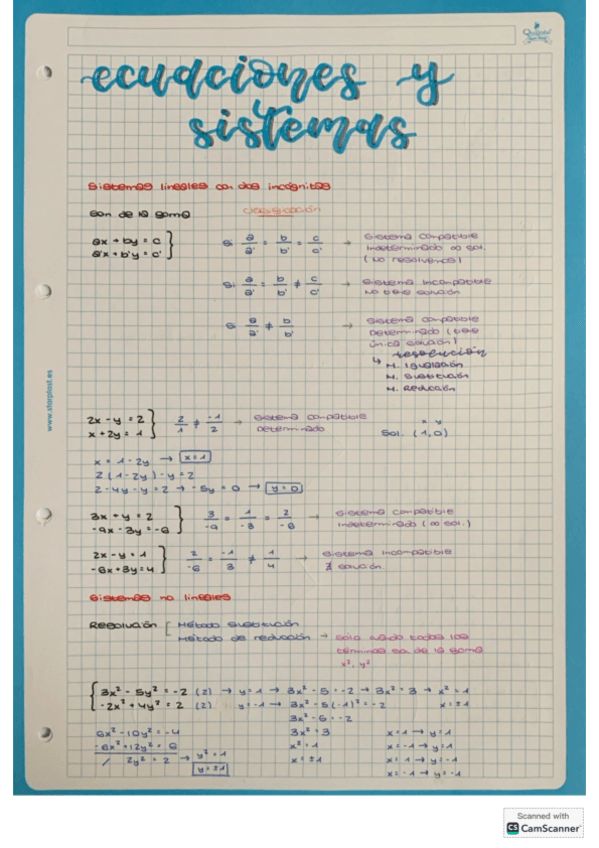 ecuaciones y
sistemas
Sistemas lineales con dos incógnitas
Son de la forma
clasificación
ax + by = c
a'x + b'y = c'
Si a/a' = b/b' = c/c' → Sistema compatible
Indeterminado ∞ sol.
(No resolvemos)
Si a/a' = b/b' ≠ c/c' → Sistema Incompatible
No tiene solución
Si a/a' ≠ b/b' → Sistema compatible
Determinado (tiene
única solución)
↳ resolución
M. Igualación
M. Sustitución
M. Reducción
www.starplast.es
2x - y = 2
x + 2y = 1
2/1 ≠ -1/2 → Sistema compatible
Determinado
x y
Sol. (1,0)
x = 1 - 2y → x = 1
2(1 - 2y) - y = 2
2 - 4y - y = 2 → -5y = 0 → y = 0
3x + y = 2
-9x - 3y = -6
3/-9 = 1/-3 = 2/-6 → Sistema compatible
Indeterminado (∞ sol.)
2x - y = 1
-6x + 3y = 4
2/-6 = -1/3 ≠ 1/4 → Sistema Incompatible
∄ solución.
Sistemas no lineales
Resolución [ Método sustitución
Método de reducción → Sólo cuando todos los
términos sea de la forma
x², y²
3x² - 5y² = -2 (2) → y = 1 → 3x² - 5 = -2 → 3x² = 3 → x² = 1
-2x² + 4y² = 2 (2) y = -1 → 3x² - 5(-1)² = -2 x = ±1
3x² - 5 = -2
6x² - 10y² = -4 3x² = 3 x = 1 → y = 1
-6x² + 12y² = 6 x² = 1 x = -1 → y = 1
/ 2y² = 2 → y² = 1 x = ±1 x = 1 → y = -1
y = ±1 x = -1 → y = -1
Scanned with
CS CamScanner